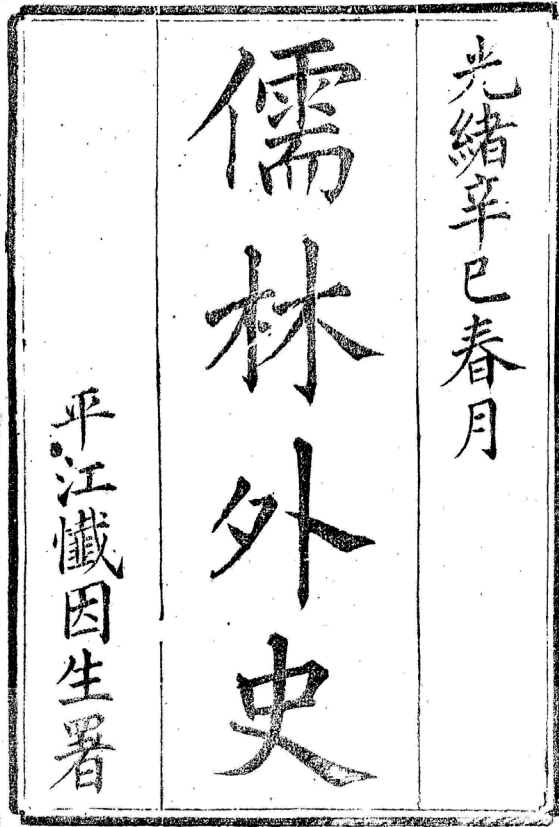 光緒辛巳春月
儒林外史
平江懺因生署